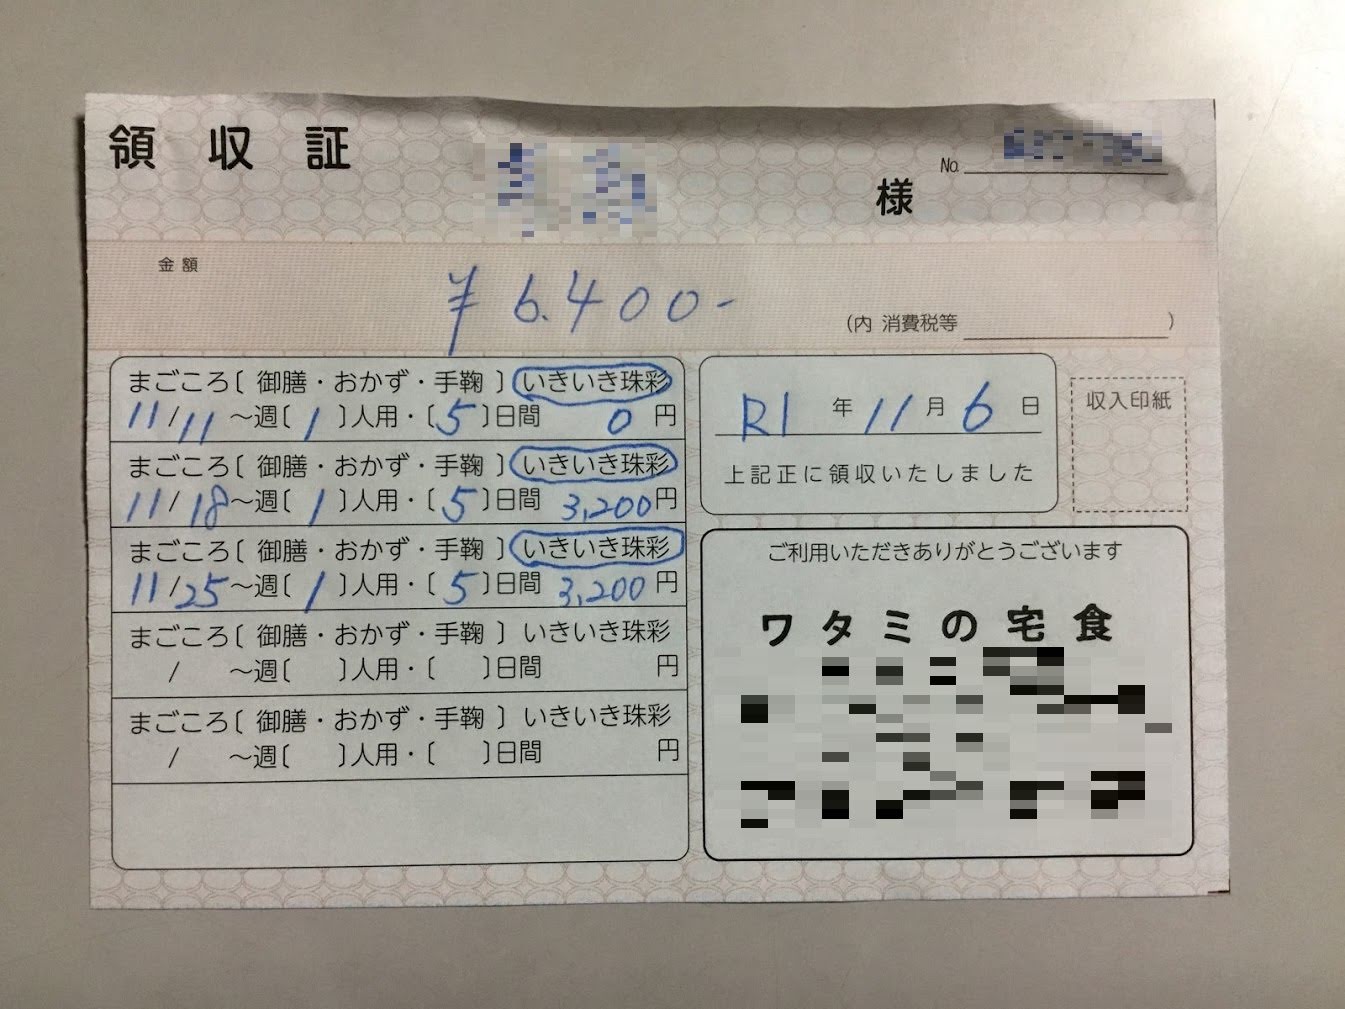 領収証
様
No.
金額
¥6.400-
(内 消費税等 )
まごころ〔 御膳・おかず・手鞠 〕いきいき珠彩
11/11～週〔1〕人用・〔5〕日間 0円
まごころ〔 御膳・おかず・手鞠 〕いきいき珠彩
11/18～週〔1〕人用・〔5〕日間 3,200円
まごころ〔 御膳・おかず・手鞠 〕いきいき珠彩
11/25～週〔1〕人用・〔5〕日間 3,200円
まごころ〔 御膳・おかず・手鞠 〕いきいき珠彩
/ ～週〔 〕人用・〔 〕日間 円
まごころ〔 御膳・おかず・手鞠 〕いきいき珠彩
/ ～週〔 〕人用・〔 〕日間 円
R1年11月6日
上記正に領収いたしました
収入印紙
ご利用いただきありがとうございます
ワタミの宅食